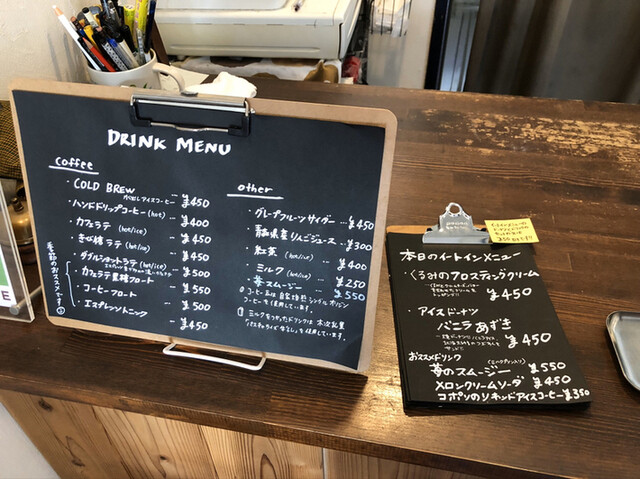 DRINK MENU
coffee
・COLD BREW ・・・ ¥450
水出しアイスコーヒー
・ハンドドリップコーヒー (hot) ・・・ ¥400
・カフェラテ (hot/ice) ・・・ ¥450
・きび糖ラテ (hot/ice) ・・・ ¥500
・ダブルショットラテ (hot/ice) ・・・ ¥550
・カフェラテ黒糖フロート ・・・ ¥550
・コーヒーフロート ・・・ ¥500
・エスプレッソトニック ・・・ ¥450
季節のおススメです
other
・グレープフルーツサイダー ・・・ ¥450
・静県産りんごジュース ・・・ ¥300
・紅茶 (hot/ice) ・・・ ¥400
・ミルク (hot/ice) ・・・ ¥250
・苺スムージー ・・・ ¥550
コーヒー豆は自家焙煎シングルオリジン
コーヒーを使用しています。
ミルクを使ったドリンクは木次乳業
「パスチャライズ牛乳」を使用しています。
本日のイートインメニュー
・くるみのフロスティングクリーム
¥450
・アイスドーナツ
バニラあずき
¥450
おススメドリンク
苺のスムージー ¥550
メロンクリームソーダ ¥450
コポンのリキッドアイスコーヒー ¥350